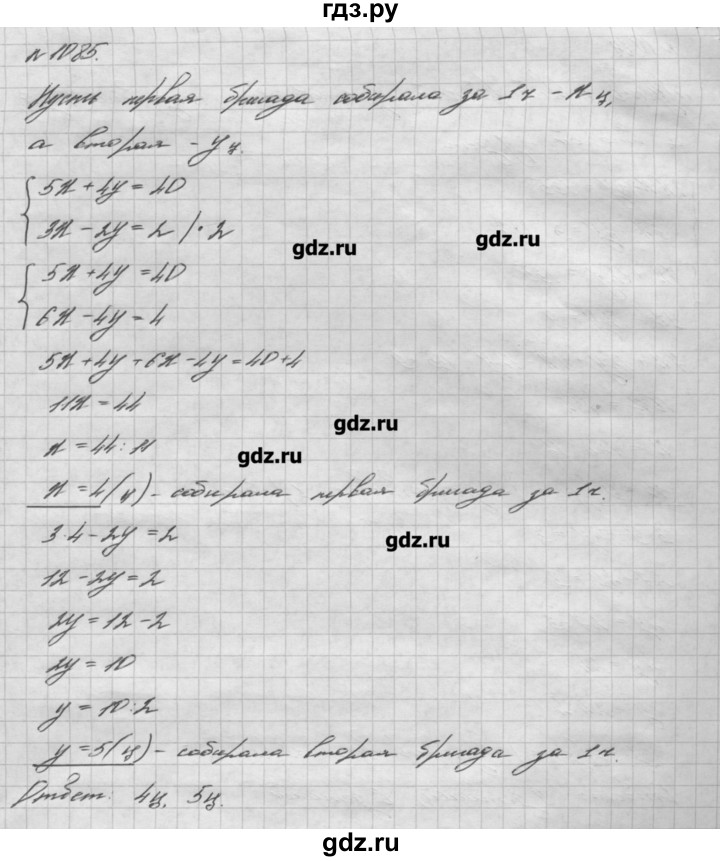 гдз.ру
n 1085.
Пусть первая бригада собирала за 1ч - x ц,
а вторая - y ц.
5x + 4y = 40
3x - 2y = 2 | · 2
gdz.ru
gdz.ru
5x + 4y = 40
6x - 4y = 4
5x + 4y + 6x - 4y = 40 + 4
11x = 44
gdz.ru
x = 44 : 11
gdz.ru
x = 4 (ц) - собирала первая бригада за 1ч.
3·4 - 2y = 2
gdz.ru
12 - 2y = 2
2y = 12 - 2
2y = 10
y = 10 : 2
y = 5 (ц) - собирала вторая бригада за 1ч.
Ответ: 4ц, 5ц.
gdz.ru